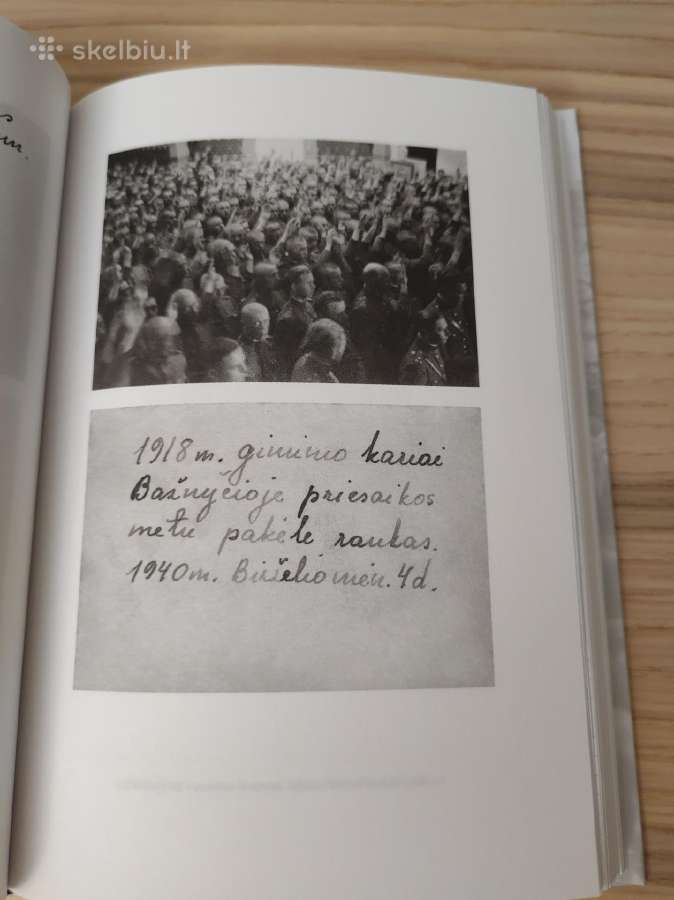 skelbiu.lt
m.
1918 m. gimimo kariai
Bažnyčioje priesaikos
metu pakėlę rankas.
1940 m. Birželio mėn. 4 d.